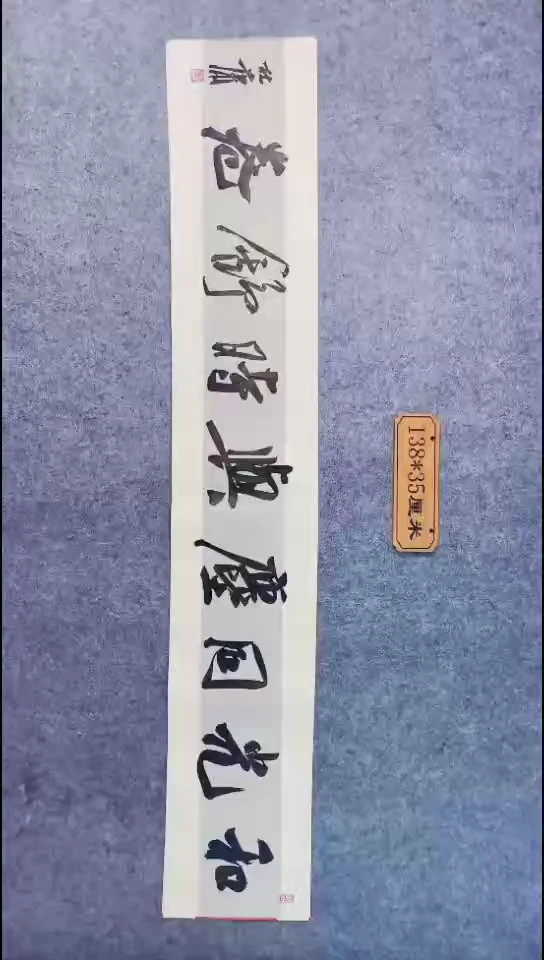 和光同塵與時舒卷
138*35厘米